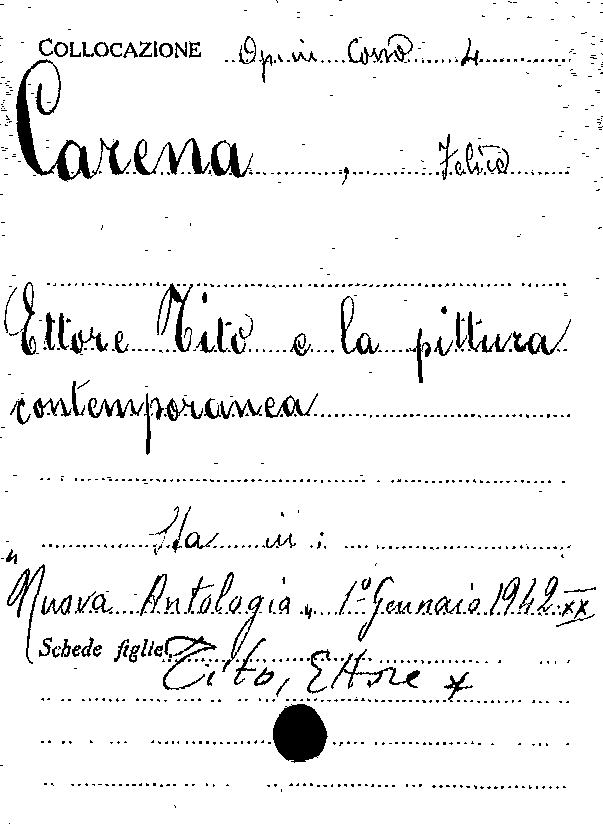 COLLOCAZIONE Op. in Corso 4
Carena, Felice
Ettore Tito e la pittura
contemporanea
Sta in :
"Nuova Antologia„ 1° Gennaio 1942 XX
Schede figlie: Tito, Ettore *